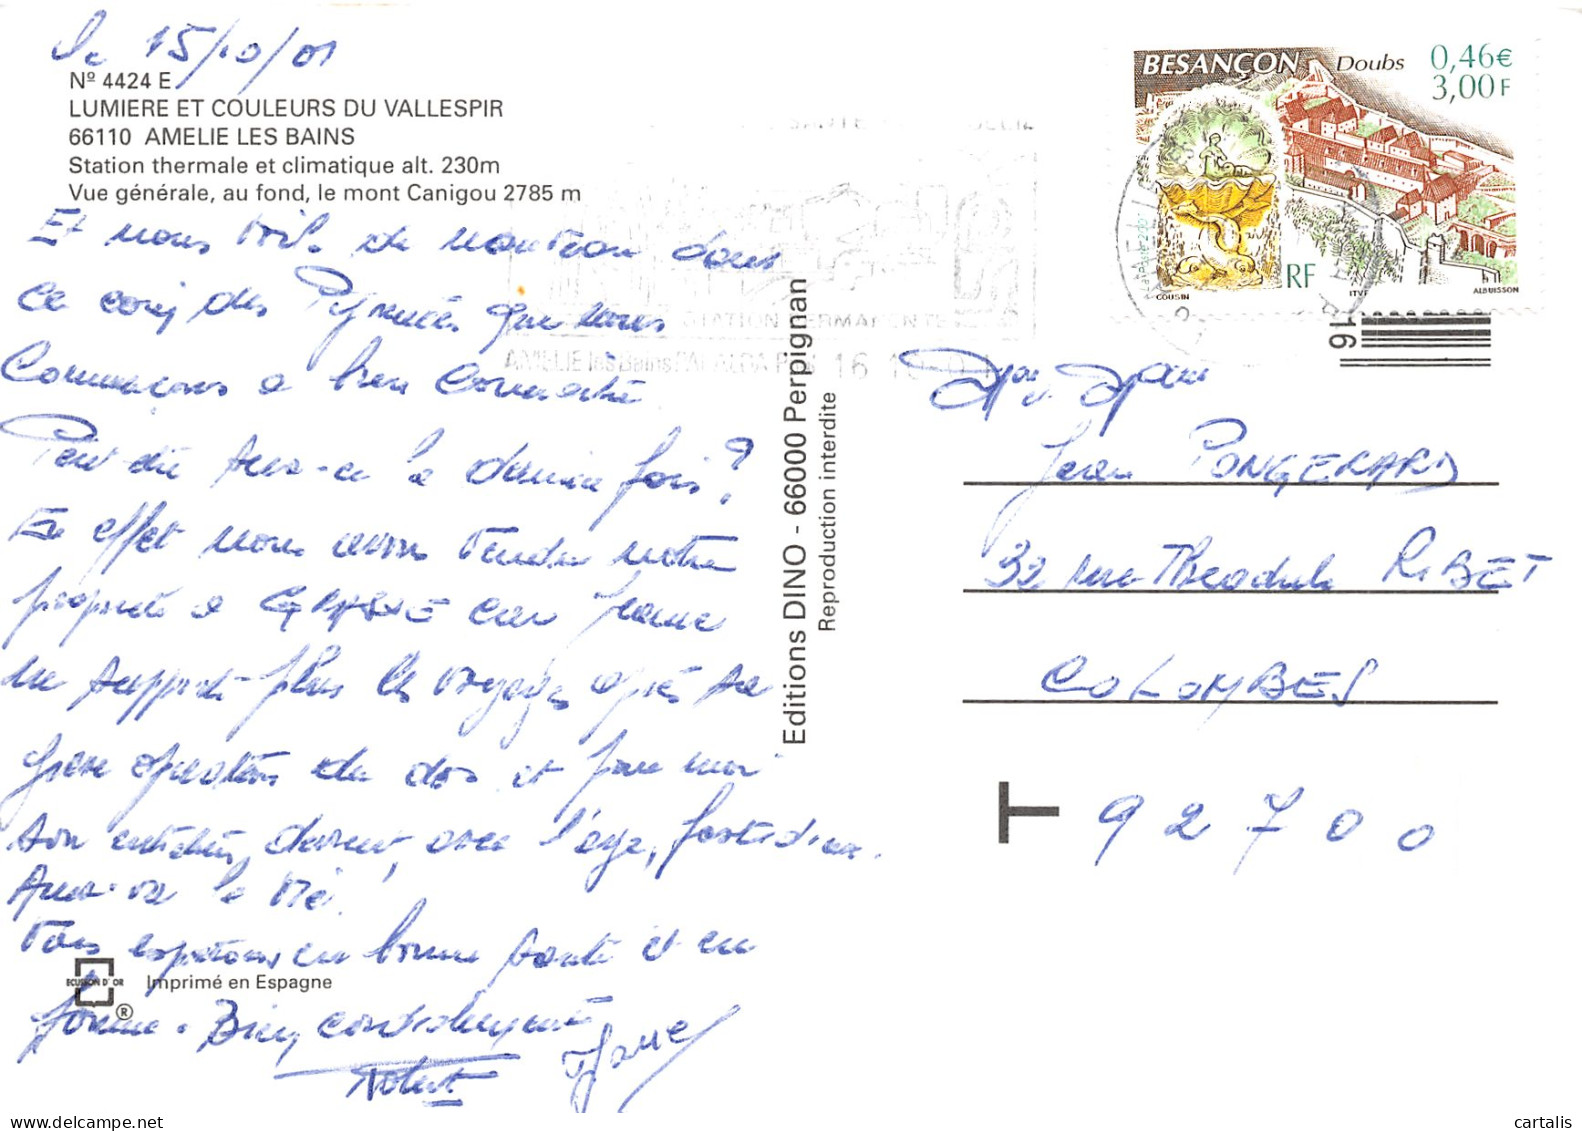 le 15/10/01
Nº 4424 E
LUMIERE ET COULEURS DU VALLESPIR
66110 AMELIE LES BAINS
Station thermale et climatique alt. 230m
Vue générale, au fond, le mont Canigou 2785 m
Et nous voilà de nouveau dans
ce coin des Pyrénées que nous
Commençons a bien Connaitre
Peut-être sera-ce la dernière fois?
En effet nous avons vendu notre
propriété a GRASSE car Jeanne
ne supporte plus les voyages après sa
grave opération du dos et pour moi
son entretien, devient, avec l'age, fastidieux.
Ainsi va la vie!
Vous espérons en bonne santé et en
forme. Bien cordialement
Robert Jeanne
Imprimé en Espagne
ECUSSON D'OR
®
Editions DINO - 66000 Perpignan
Reproduction interdite
STATION PERMANENTE
AMELIE les Bains PALALDA
BESANÇON Doubs 0,46€
3,00F
RF
COUSIN ITVF ALBUISSON
16
Jean PONGERARD
32 rue Theodule RIBOT
COLOMBES
T 92700
cartalis